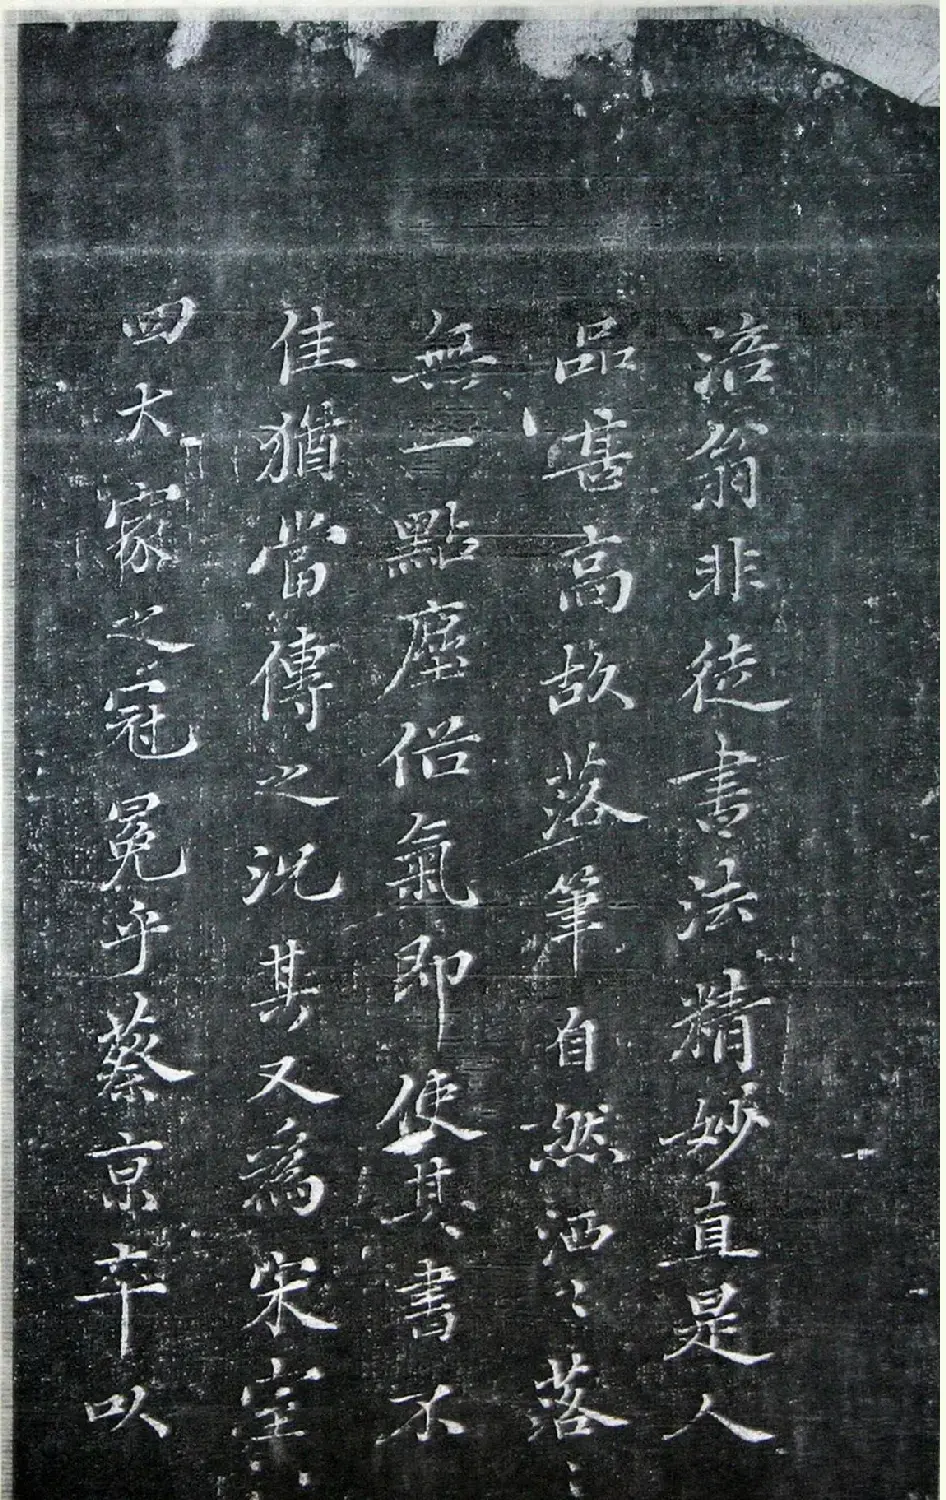 涪翁非徒書法精妙直是人
品甚高故落筆自然洒〻落〻
無一點塵俗氣即使其書不
佳猶當傳之況其又為宋室
四大家之冠冕乎蔡京卒以